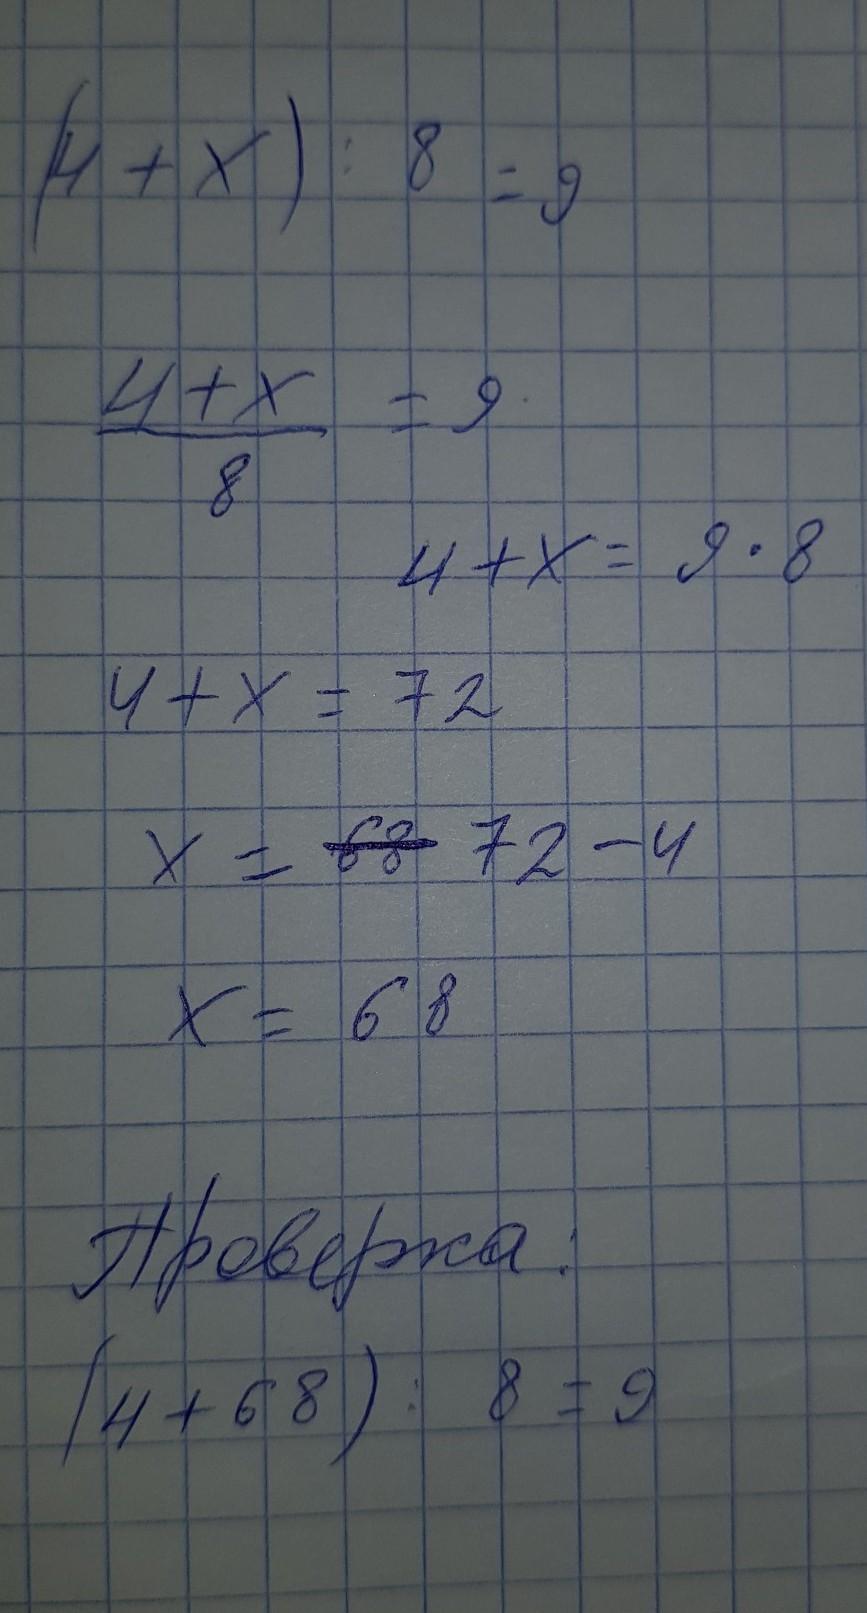 (4 + x) : 8 = 9
4 + x / 8 = 9
4 + x = 9 · 8
4 + x = 72
x = 68 72 - 4
x = 68
Проверка:
(4 + 68) : 8 = 9